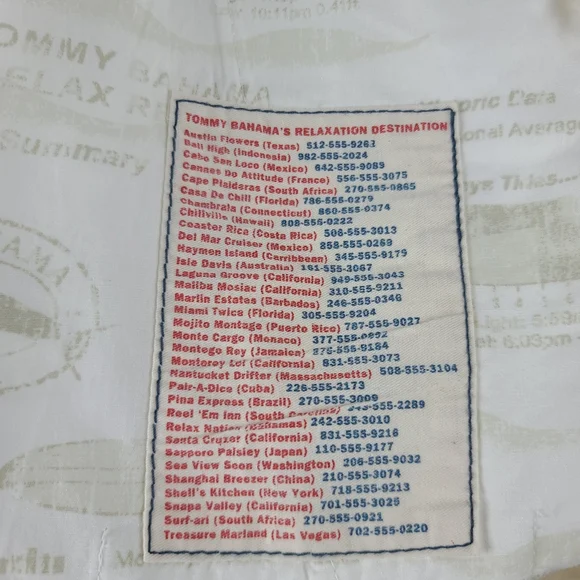 10:11pm 0.41ft
OMMY BAHAMA
ELAX R
Summary
TOMMY BAHAMA'S RELAXATION DESTINATION
Austin Flowers (Texas) 512-555-9263
Bali High (Indonesia) 982-555-2024
Cabo San Loco (Mexico) 642-555-9089
Cannes Do Attitude (France) 556-555-3075
Cape Plaidsras (South Africa) 270-555-0865
Casa De Chill (Florida) 786-555-0279
Chambrala (Connecticut) 860-555-0374
Chillville (Hawaii) 808-555-0222
Coaster Rica (Costa Rica) 506-555-3013
Del Mar Cruiser (Mexico) 858-555-0269
Haymen Island (Carribbean) 345-555-9179
Isle Davis (Australia) 161-555-3067
Laguna Groove (California) 949-555-3043
Malibu Mosiac (California) 310-555-9211
Marlin Estates (Barbados) 246-555-0346
Miami Twice (Florida) 305-555-9204
Mojito Montage (Puerto Rico) 787-555-9027
Monte Cargo (Monaco) 377-555-0892
Montego Rey (Jamaica) 876-555-9184
Monterey Lei (California) 831-555-3073
Nantucket Drifter (Massachusetts) 508-555-3104
Pair-A-Dice (Cuba) 226-555-2173
Pina Express (Brazil) 270-555-3009
Reel 'Em Inn (South Carolina) 843-555-2289
Relax Nation (Bahamas) 242-555-3010
Santa Cruzer (California) 831-555-9216
Sapporo Paisley (Japan) 110-555-9177
Sea View Soon (Washington) 206-555-9032
Shanghai Breezer (China) 210-555-3074
Shell's Kitchen (New York) 718-555-9213
Snapa Valley (California) 701-555-3025
Surf-ari (South Africa) 270-555-0921
Treasure Marland (Las Vegas) 702-555-0220
oric Data
onal Average
ys This...
3 4 5 6